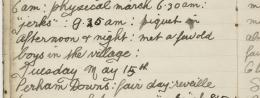 6am: physical march 6.30am:
"jerks": 9.25am: piquet in
afternoon & night: met a few old
boys in the village:
Tuesday May 15th
Perham Downs: fair day: reveille